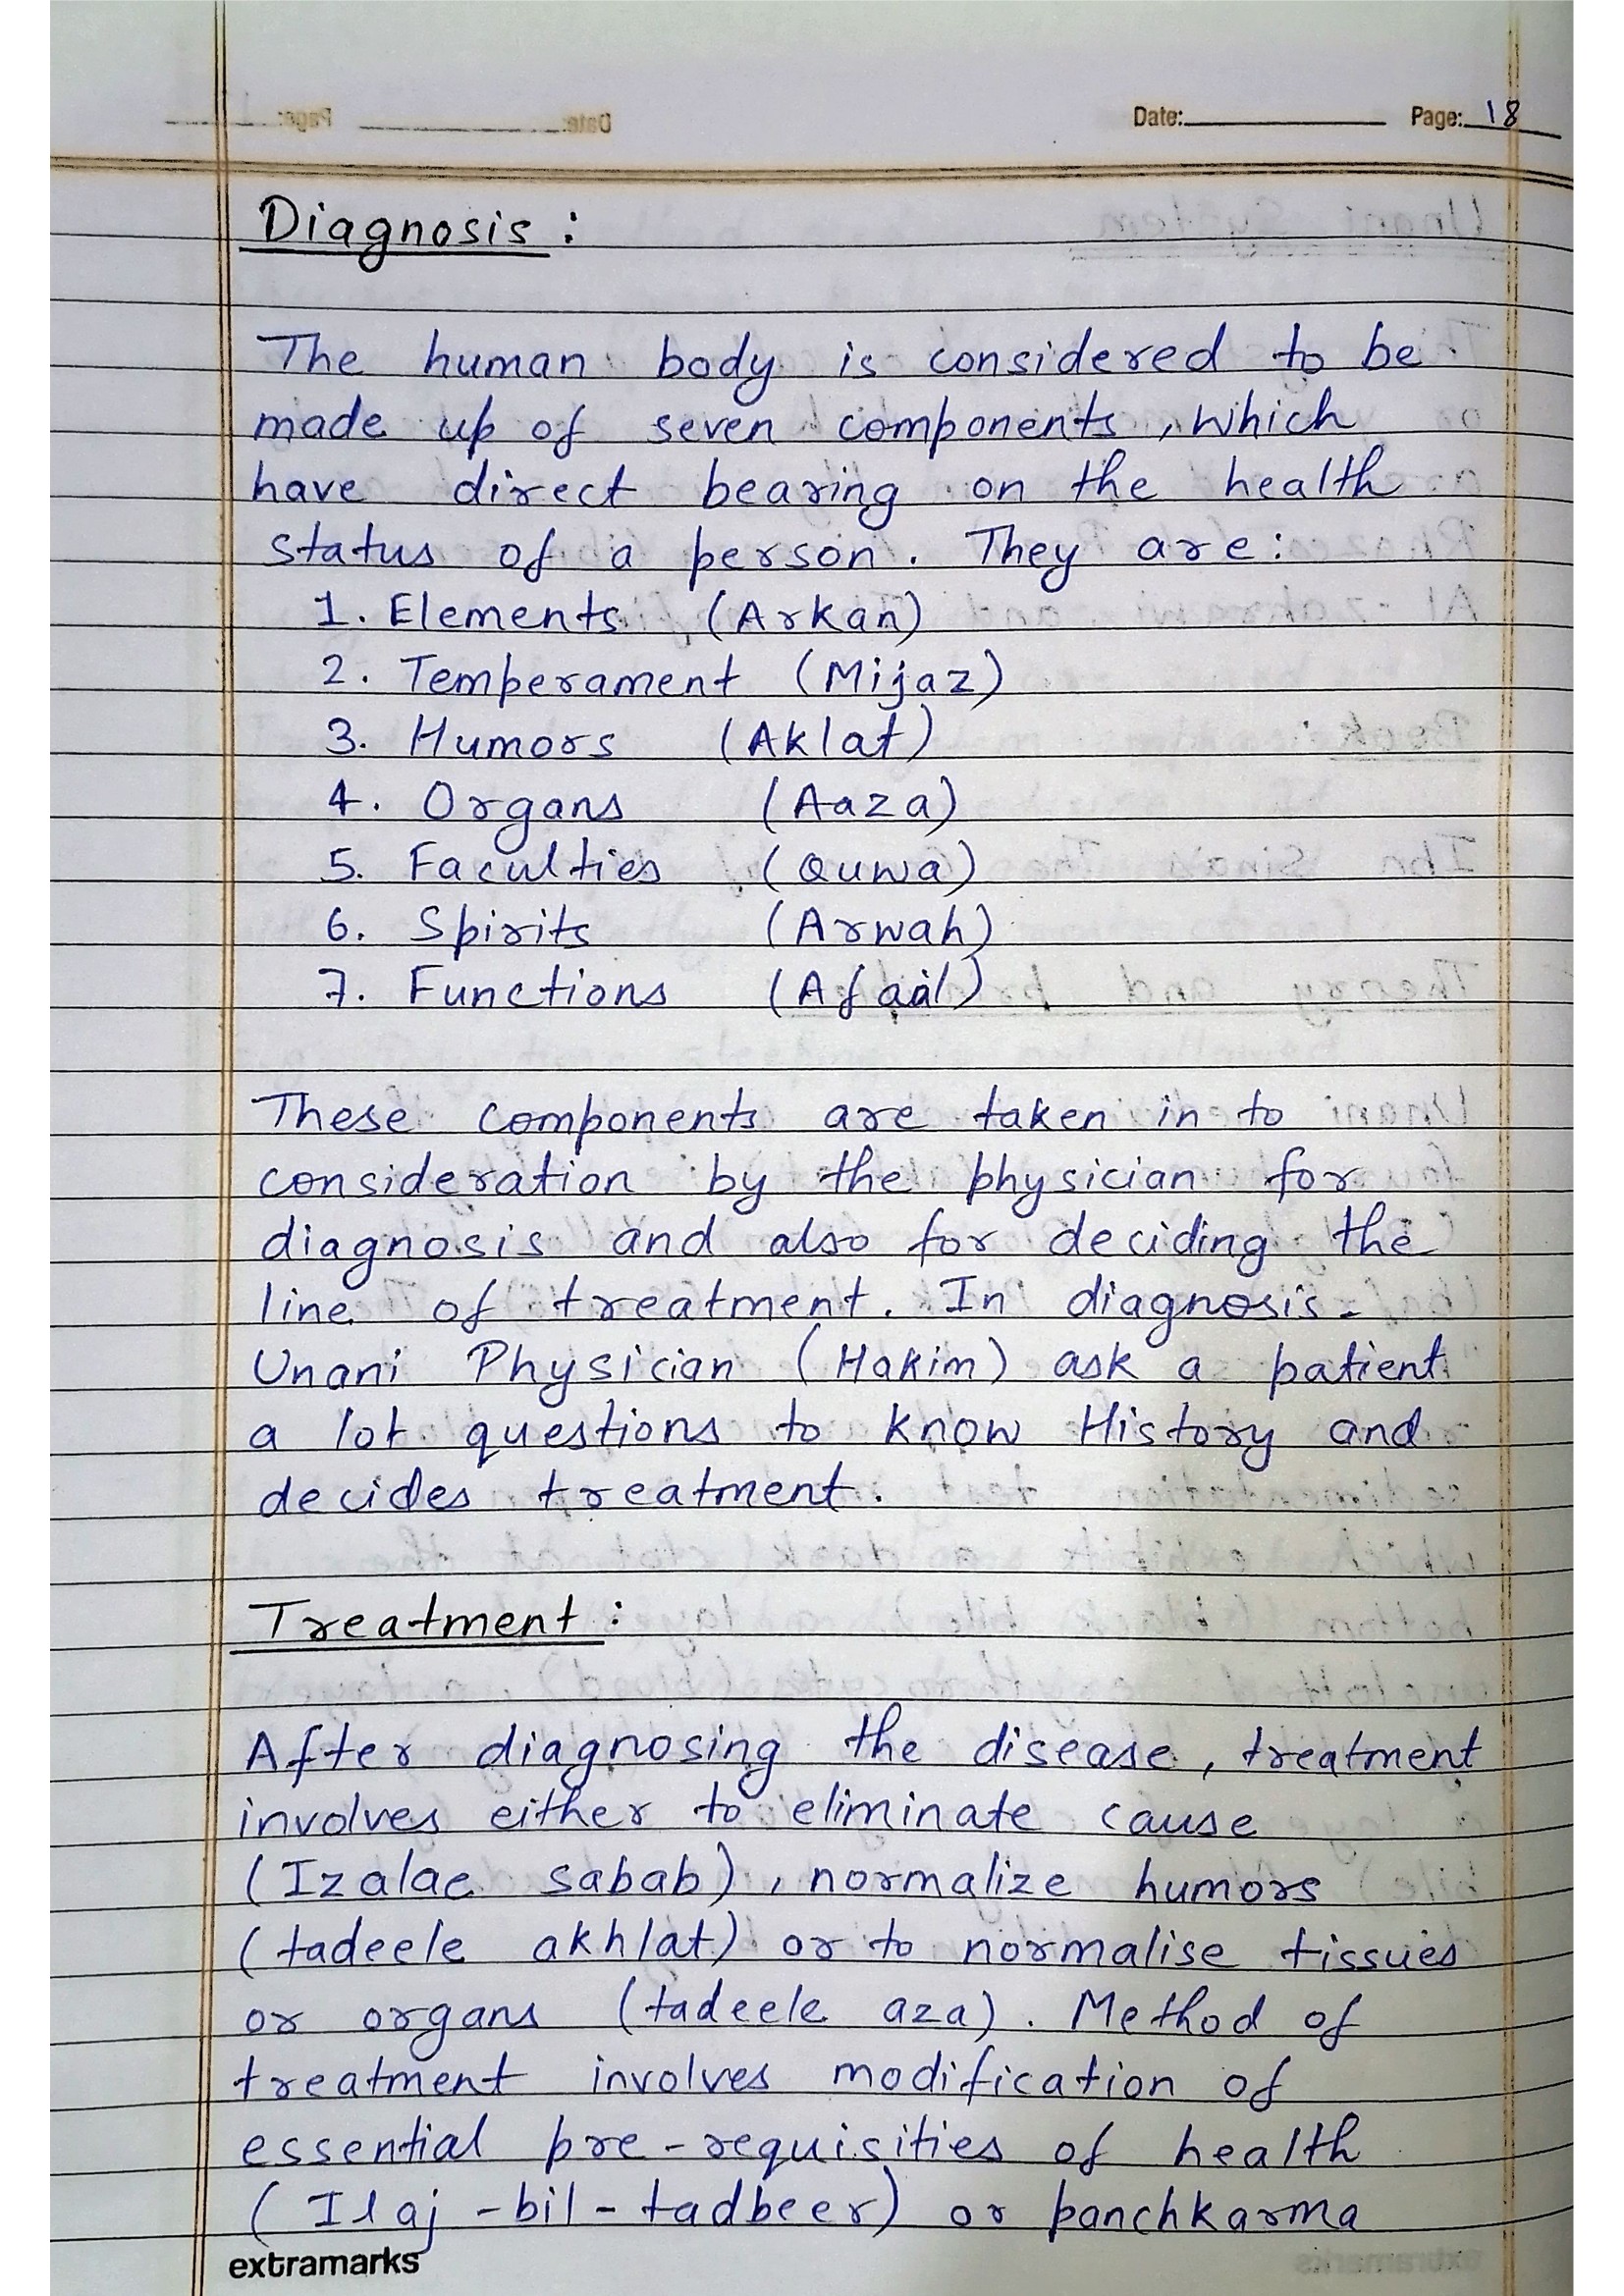 Date: Page: 18
Diagnosis :
The human body is considered to be
made up of seven components, which
have direct bearing on the health
status of a person. They are:
1. Elements (Arkan)
2. Temperament (Mijaz)
3. Humors (Aklat)
4. Organs (Aaza)
5. Faculties (Quwa)
6. Spirits (Arwah)
7. Functions (Afaal)
These components are taken in to
consideration by the physician for
diagnosis and also for deciding the
line of treatment. In diagnosis-
Unani Physician (Hakim) ask a patient
a lot questions to know History and
decides treatment.
Treatment :
After diagnosing the disease, treatment
involves either to eliminate cause
(Izalae sabab), normalize humors
(tadeele akhlat) or to normalise tissues
or organs (tadeele aza). Method of
treatment involves modification of
essential pre-requisities of health
(Ilaj-bil-tadbeer) or panchkarma
extramarks